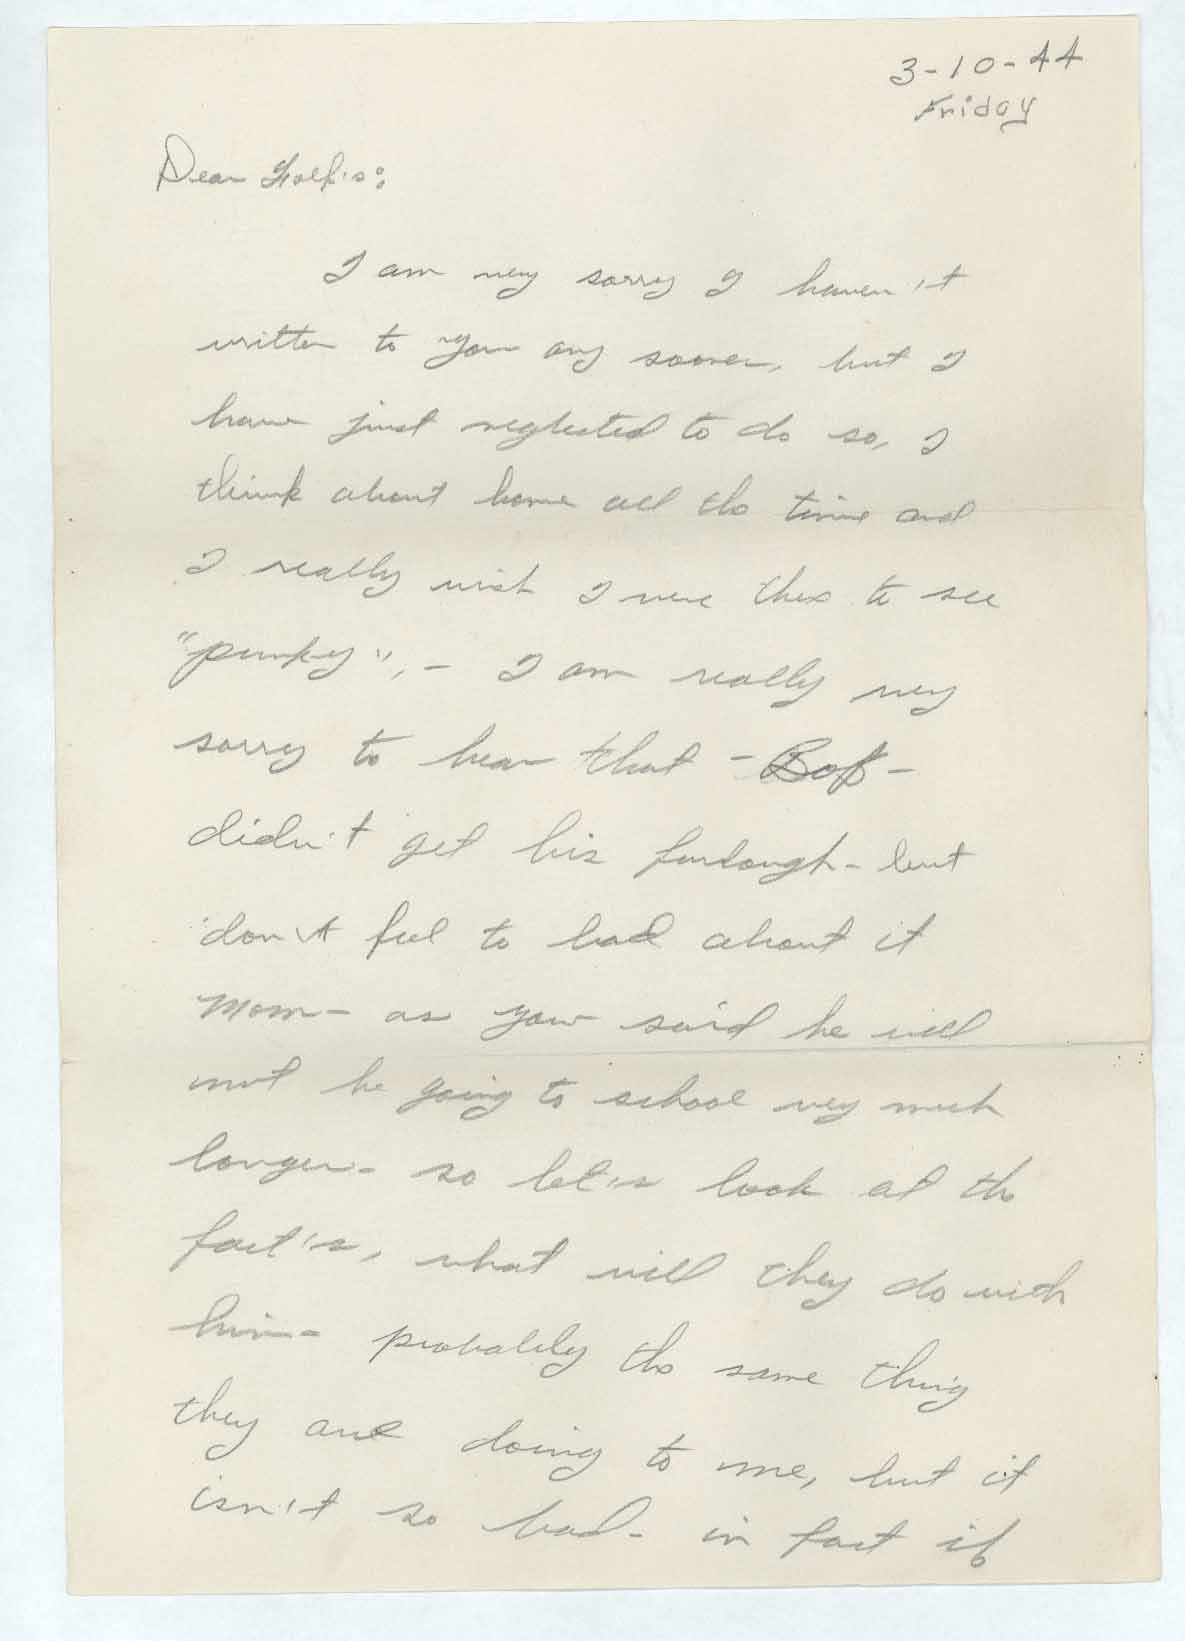 3-10-44
Friday
Dear Folk's:
I am very sorry I haven't
written to you any sooner, but I
have just neglected to do so, I
think about home all the time and
I really wish I were there to see
"pinky", - I am really very
sorry to hear that - Bob -
didn't get his furlough - but
don't feel to bad about it
Mom - as you said he will
not be going to school very much
longer - so let's look at the
fact's, what will they do with
him - probably the same thing
they are doing to me, but it
isn't so bad - in fact if